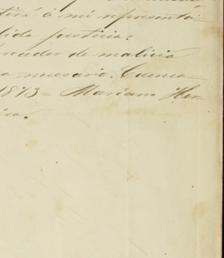 á mi representa
lida justicia:
proceder de malicia
necesario. Cuenca
1873 = Mariano Her